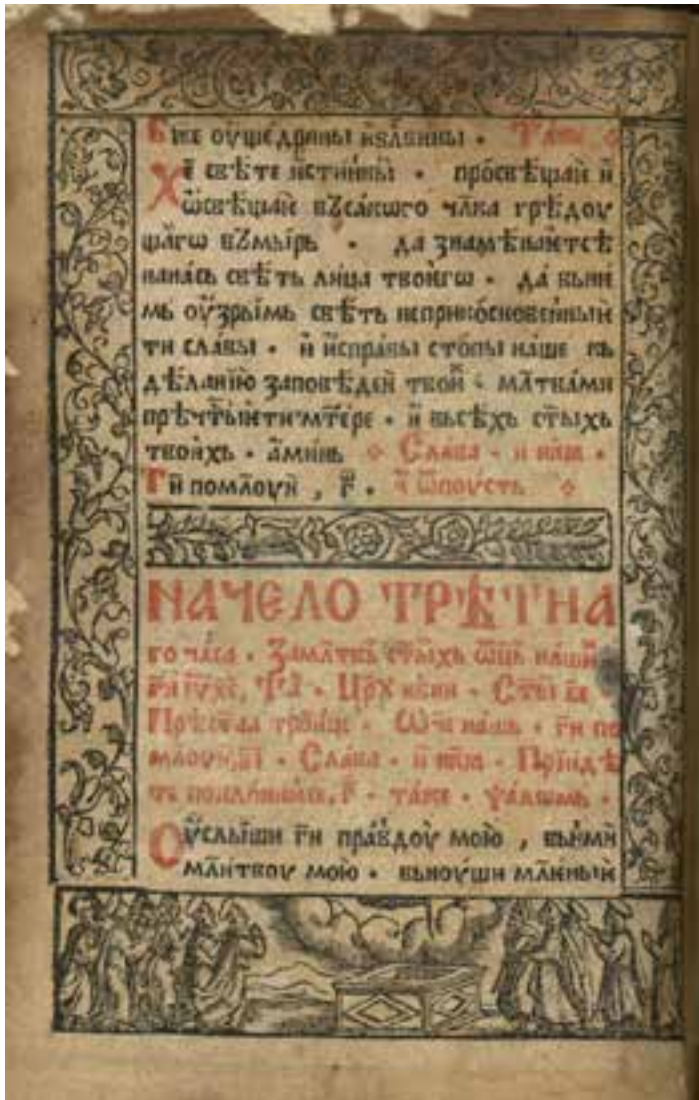 Бже оущедрины
Хе свѣте истинны · просвѣщаѥ и
ѡсвѣщаѥ въсакѡго члвка грѣдоу
щаго въмыръ · да знамѣнаѥтсѣ
нанась свѣть лица твоѥгѡ · да вьни
мь оузрымь свѣть неприкосновенныѥ
ти славы · и исправы стопы наше кь
дѣланїю заповѣдеѥ твоиⷯ · млтвами
прѣчтыѥ ти мтере · и вьсѣхь стыхь
твоихь · аминь · Слава · и нын ·
Ги помлоуи , г҃ · и ѡпоусть
НАЧЕЛО ТРѢТНА
го часа · Замлтвь стыхь ѡць нашиⷯ
Црꙋ нбни · Сты бж
Прѣстаа троице · Ѡче нашь · ги по
млоуи, · Слава · и нын · Прїидѣ
те поклонимсе, г҃ · таже · ѱалѡмь ·
Оуслыши ги правдоу мою , вьнми
млитвоу мою · вьноуши млинныѥ